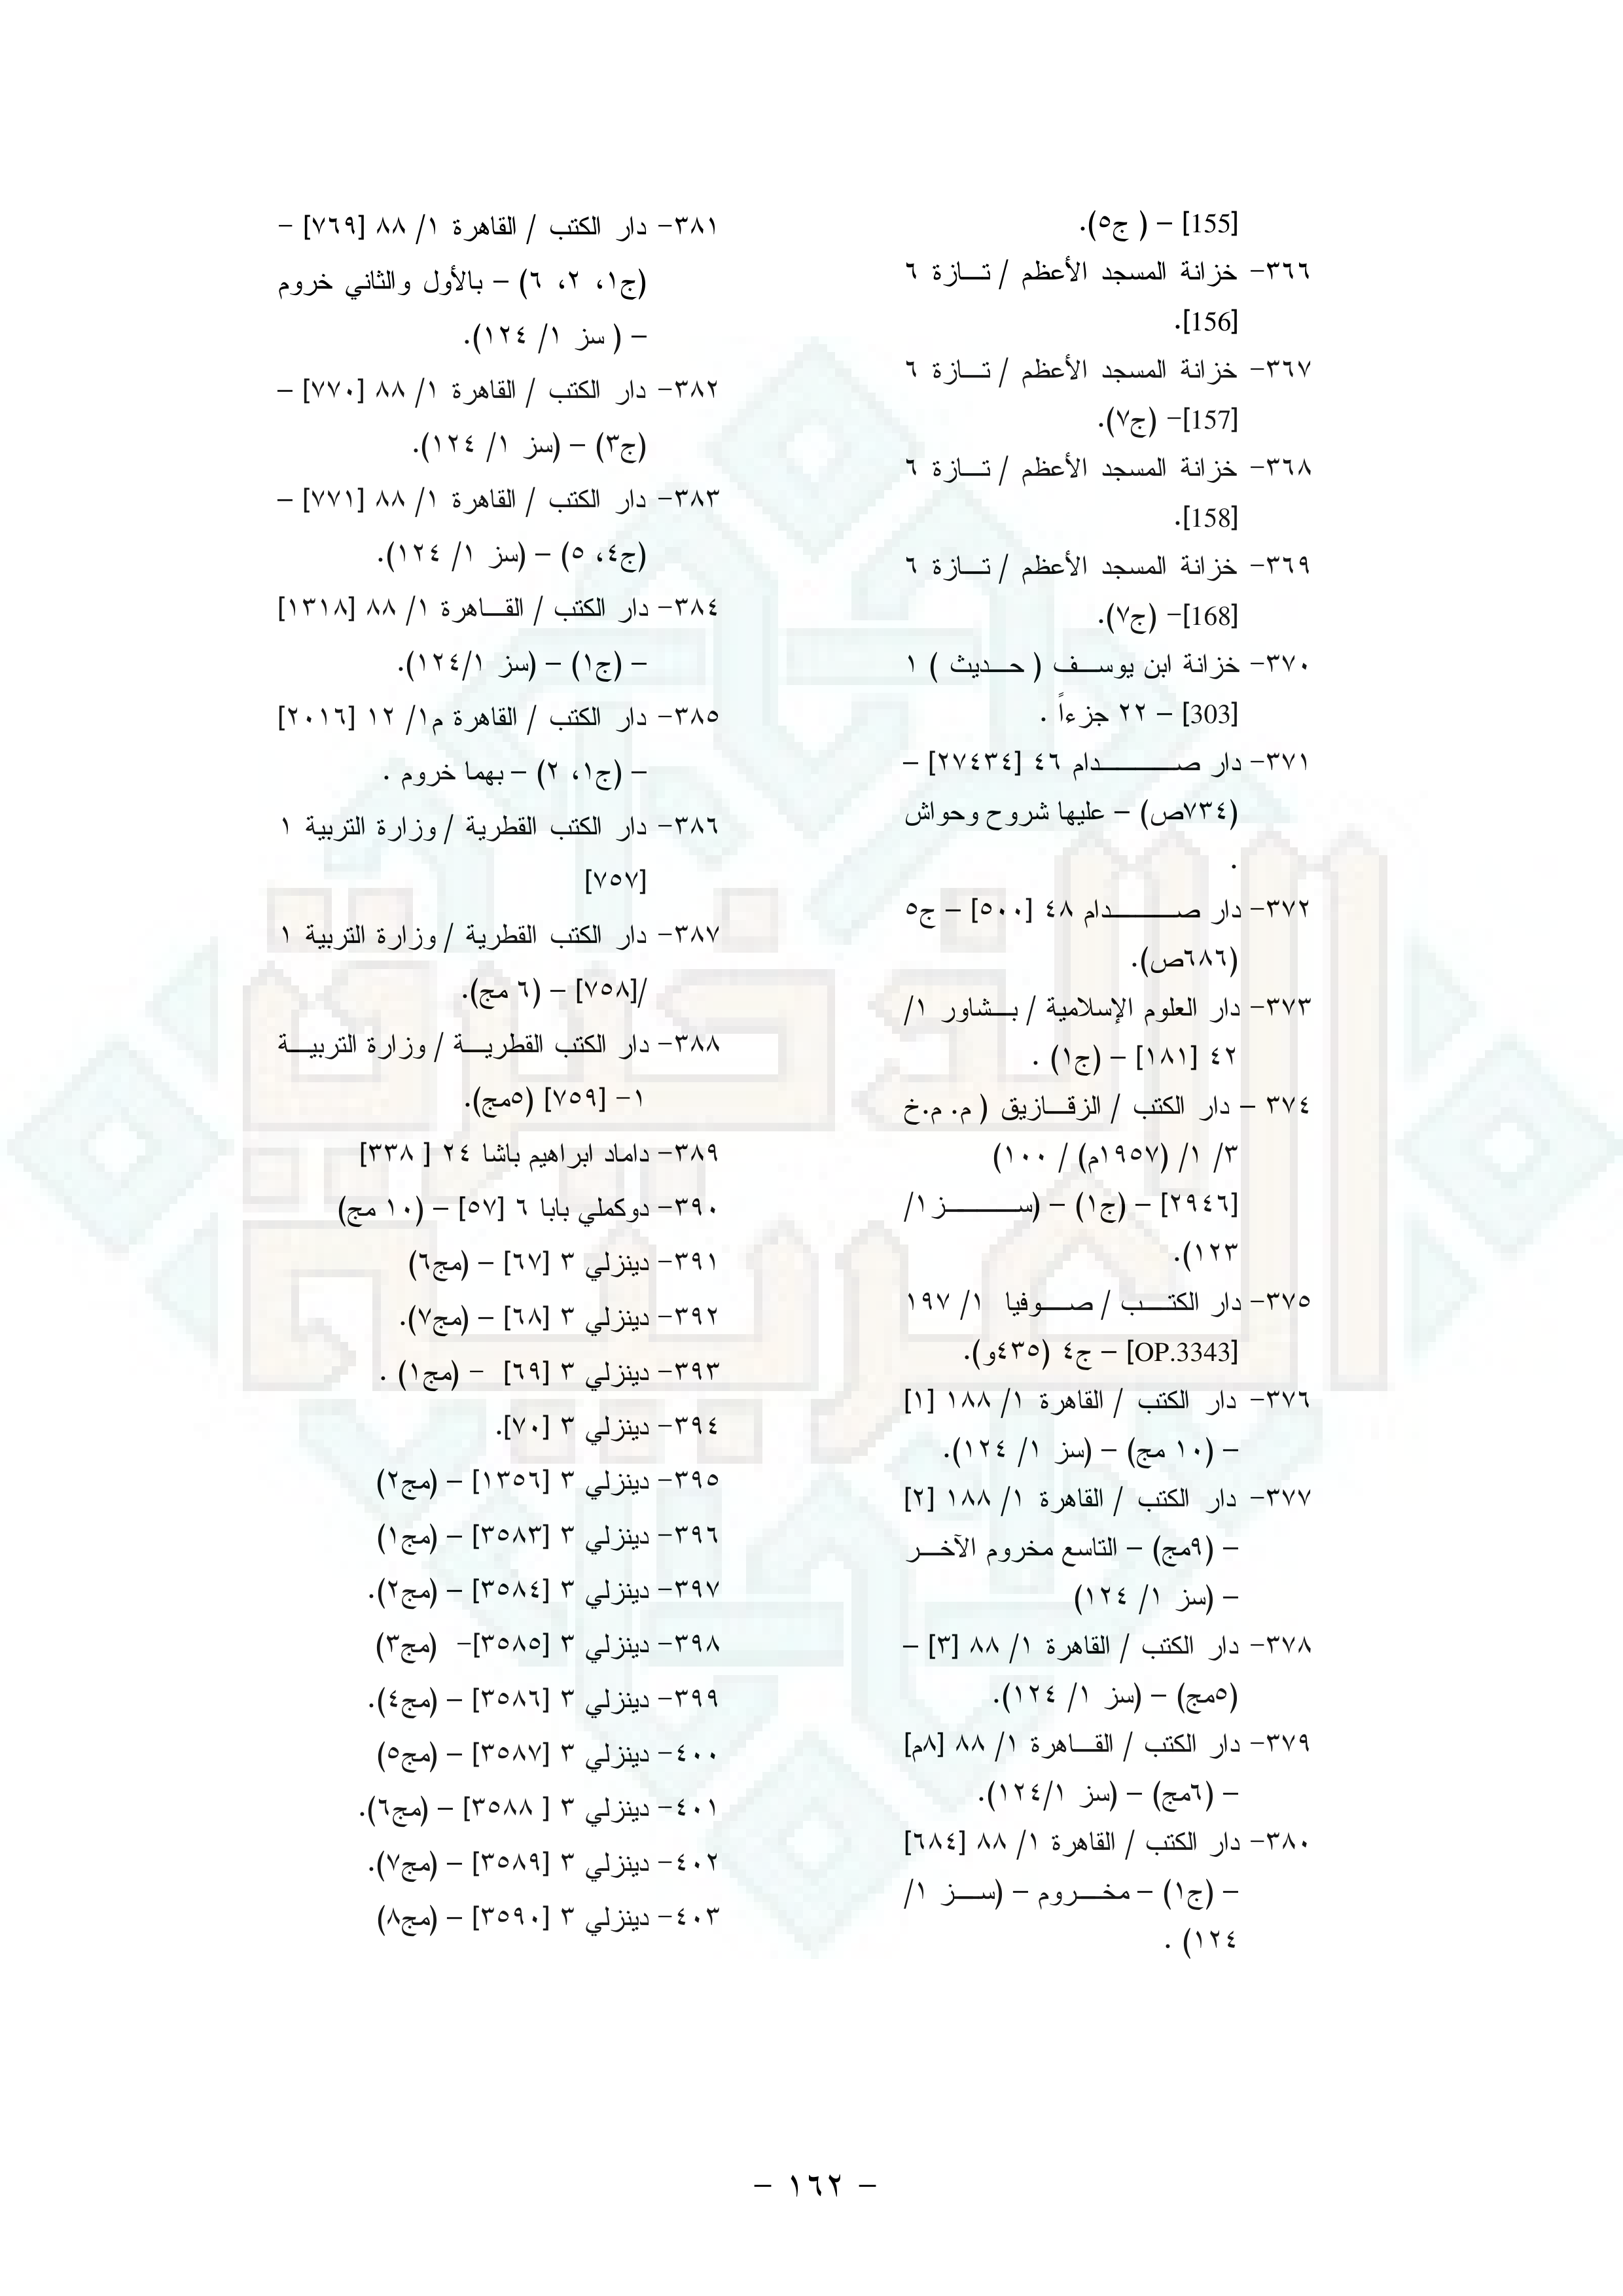 [155] – ( ج٥).
٣٦٦- خزانة المسجد الأعظم / تازة ٦
[156].
٣٦٧- خزانة المسجد الأعظم / تازة ٦
[157]- (ج٧).
٣٦٨- خزانة المسجد الأعظم / تازة ٦
[158].
٣٦٩- خزانة المسجد الأعظم / تازة ٦
[168]- (ج٧).
٣٧٠- خزانة ابن يوسف ( حديث ) ١
[303] – ٢٢ جزءاً .
٣٧١- دار صدام ٤٦ [٢٧٤٣٤] –
(٧٣٤ص) – عليها شروح وحواش
.
٣٧٢- دار صدام ٤٨ [٥٠٠] – ج٥
(٦٨٦ص).
٣٧٣- دار العلوم الإسلامية / بشاور ١/
٤٢ [١٨١] – (ج١) .
٣٧٤ – دار الكتب / الزقازيق ( م. م.خ
٣/ ١/ (١٩٥٧م) / ١٠٠)
[٢٩٤٦] – (ج١) – (سز ١/
١٢٣).
٣٧٥- دار الكتب / صوفيا ١/ ١٩٧
[OP.3343] – ج٤ (٤٣٥و).
٣٧٦- دار الكتب / القاهرة ١/ ١٨٨ [١]
– (١٠ مج) – (سز ١/ ١٢٤).
٣٧٧- دار الكتب / القاهرة ١/ ١٨٨ [٢]
– (٩مج) – التاسع مخروم الآخر
– (سز ١/ ١٢٤)
٣٧٨- دار الكتب / القاهرة ١/ ٨٨ [٣] –
(٥مج) – (سز ١/ ١٢٤).
٣٧٩- دار الكتب / القاهرة ١/ ٨٨ [٨م]
– (٦مج) – (سز ١/١٢٤).
٣٨٠- دار الكتب / القاهرة ١/ ٨٨ [٦٨٤]
– (ج١) – مخروم – (سز ١/
١٢٤) .
٣٨١- دار الكتب / القاهرة ١/ ٨٨ [٧٦٩] –
(ج١، ٢، ٦) – بالأول والثاني خروم
– ( سز ١/ ١٢٤).
٣٨٢- دار الكتب / القاهرة ١/ ٨٨ [٧٧٠] –
(ج٣) – (سز ١/ ١٢٤).
٣٨٣- دار الكتب / القاهرة ١/ ٨٨ [٧٧١] –
(ج٤، ٥) – (سز ١/ ١٢٤).
٣٨٤- دار الكتب / القاهرة ١/ ٨٨ [١٣١٨]
– (ج١) – (سز ١/١٢٤).
٣٨٥- دار الكتب / القاهرة م١/ ١٢ [٢٠١٦]
– (ج١، ٢) – بهما خروم .
٣٨٦- دار الكتب القطرية / وزارة التربية ١
[٧٥٧]
٣٨٧- دار الكتب القطرية / وزارة التربية ١
/[٧٥٨] – (٦ مج).
٣٨٨- دار الكتب القطرية / وزارة التربية
١- [٧٥٩] (٥مج).
٣٨٩- داماد ابراهيم باشا ٢٤ [ ٣٣٨]
٣٩٠- دوكملي بابا ٦ [٥٧] – (١٠ مج)
٣٩١- دينزلي ٣ [٦٧] – (مج٦)
٣٩٢- دينزلي ٣ [٦٨] – (مج٧).
٣٩٣- دينزلي ٣ [٦٩] - (مج١) .
٣٩٤- دينزلي ٣ [٧٠].
٣٩٥- دينزلي ٣ [١٣٥٦] – (مج٢)
٣٩٦- دينزلي ٣ [٣٥٨٣] – (مج١)
٣٩٧- دينزلي ٣ [٣٥٨٤] – (مج٢).
٣٩٨- دينزلي ٣ [٣٥٨٥]- (مج٣)
٣٩٩- دينزلي ٣ [٣٥٨٦] – (مج٤).
٤٠٠- دينزلي ٣ [٣٥٨٧] – (مج٥)
٤٠١- دينزلي ٣ [ ٣٥٨٨] – (مج٦).
٤٠٢- دينزلي ٣ [٣٥٨٩] – (مج٧).
٤٠٣- دينزلي ٣ [٣٥٩٠] – (مج٨)
– ١٦٢ –